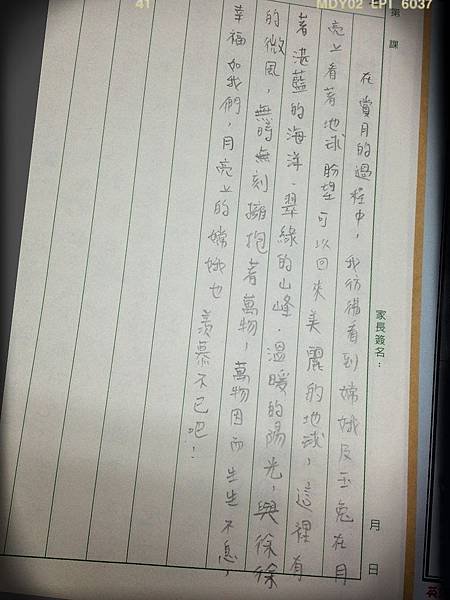 41
MDY02 EPT 6037
第 課
家長簽名：
月 日
在賞月的過程中，我彷彿看到嫦娥及玉兔在月
亮上看著地球盼望可以回來美麗的地球，這裡有
著湛藍的海洋．翠綠的山峰．溫暖的陽光，與徐徐
的微風，無時無刻擁抱著萬物，萬物因而生生不息，
幸福如我們，月亮上的嫦娥也羨慕不已吧！